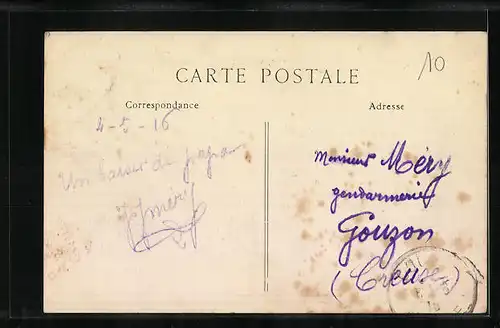 10
CARTE POSTALE
Correspondance
Adresse
4-5-16
Un baiser de papa
Monsieur Méry
gendarmerie
Gouzon
(Creuse)